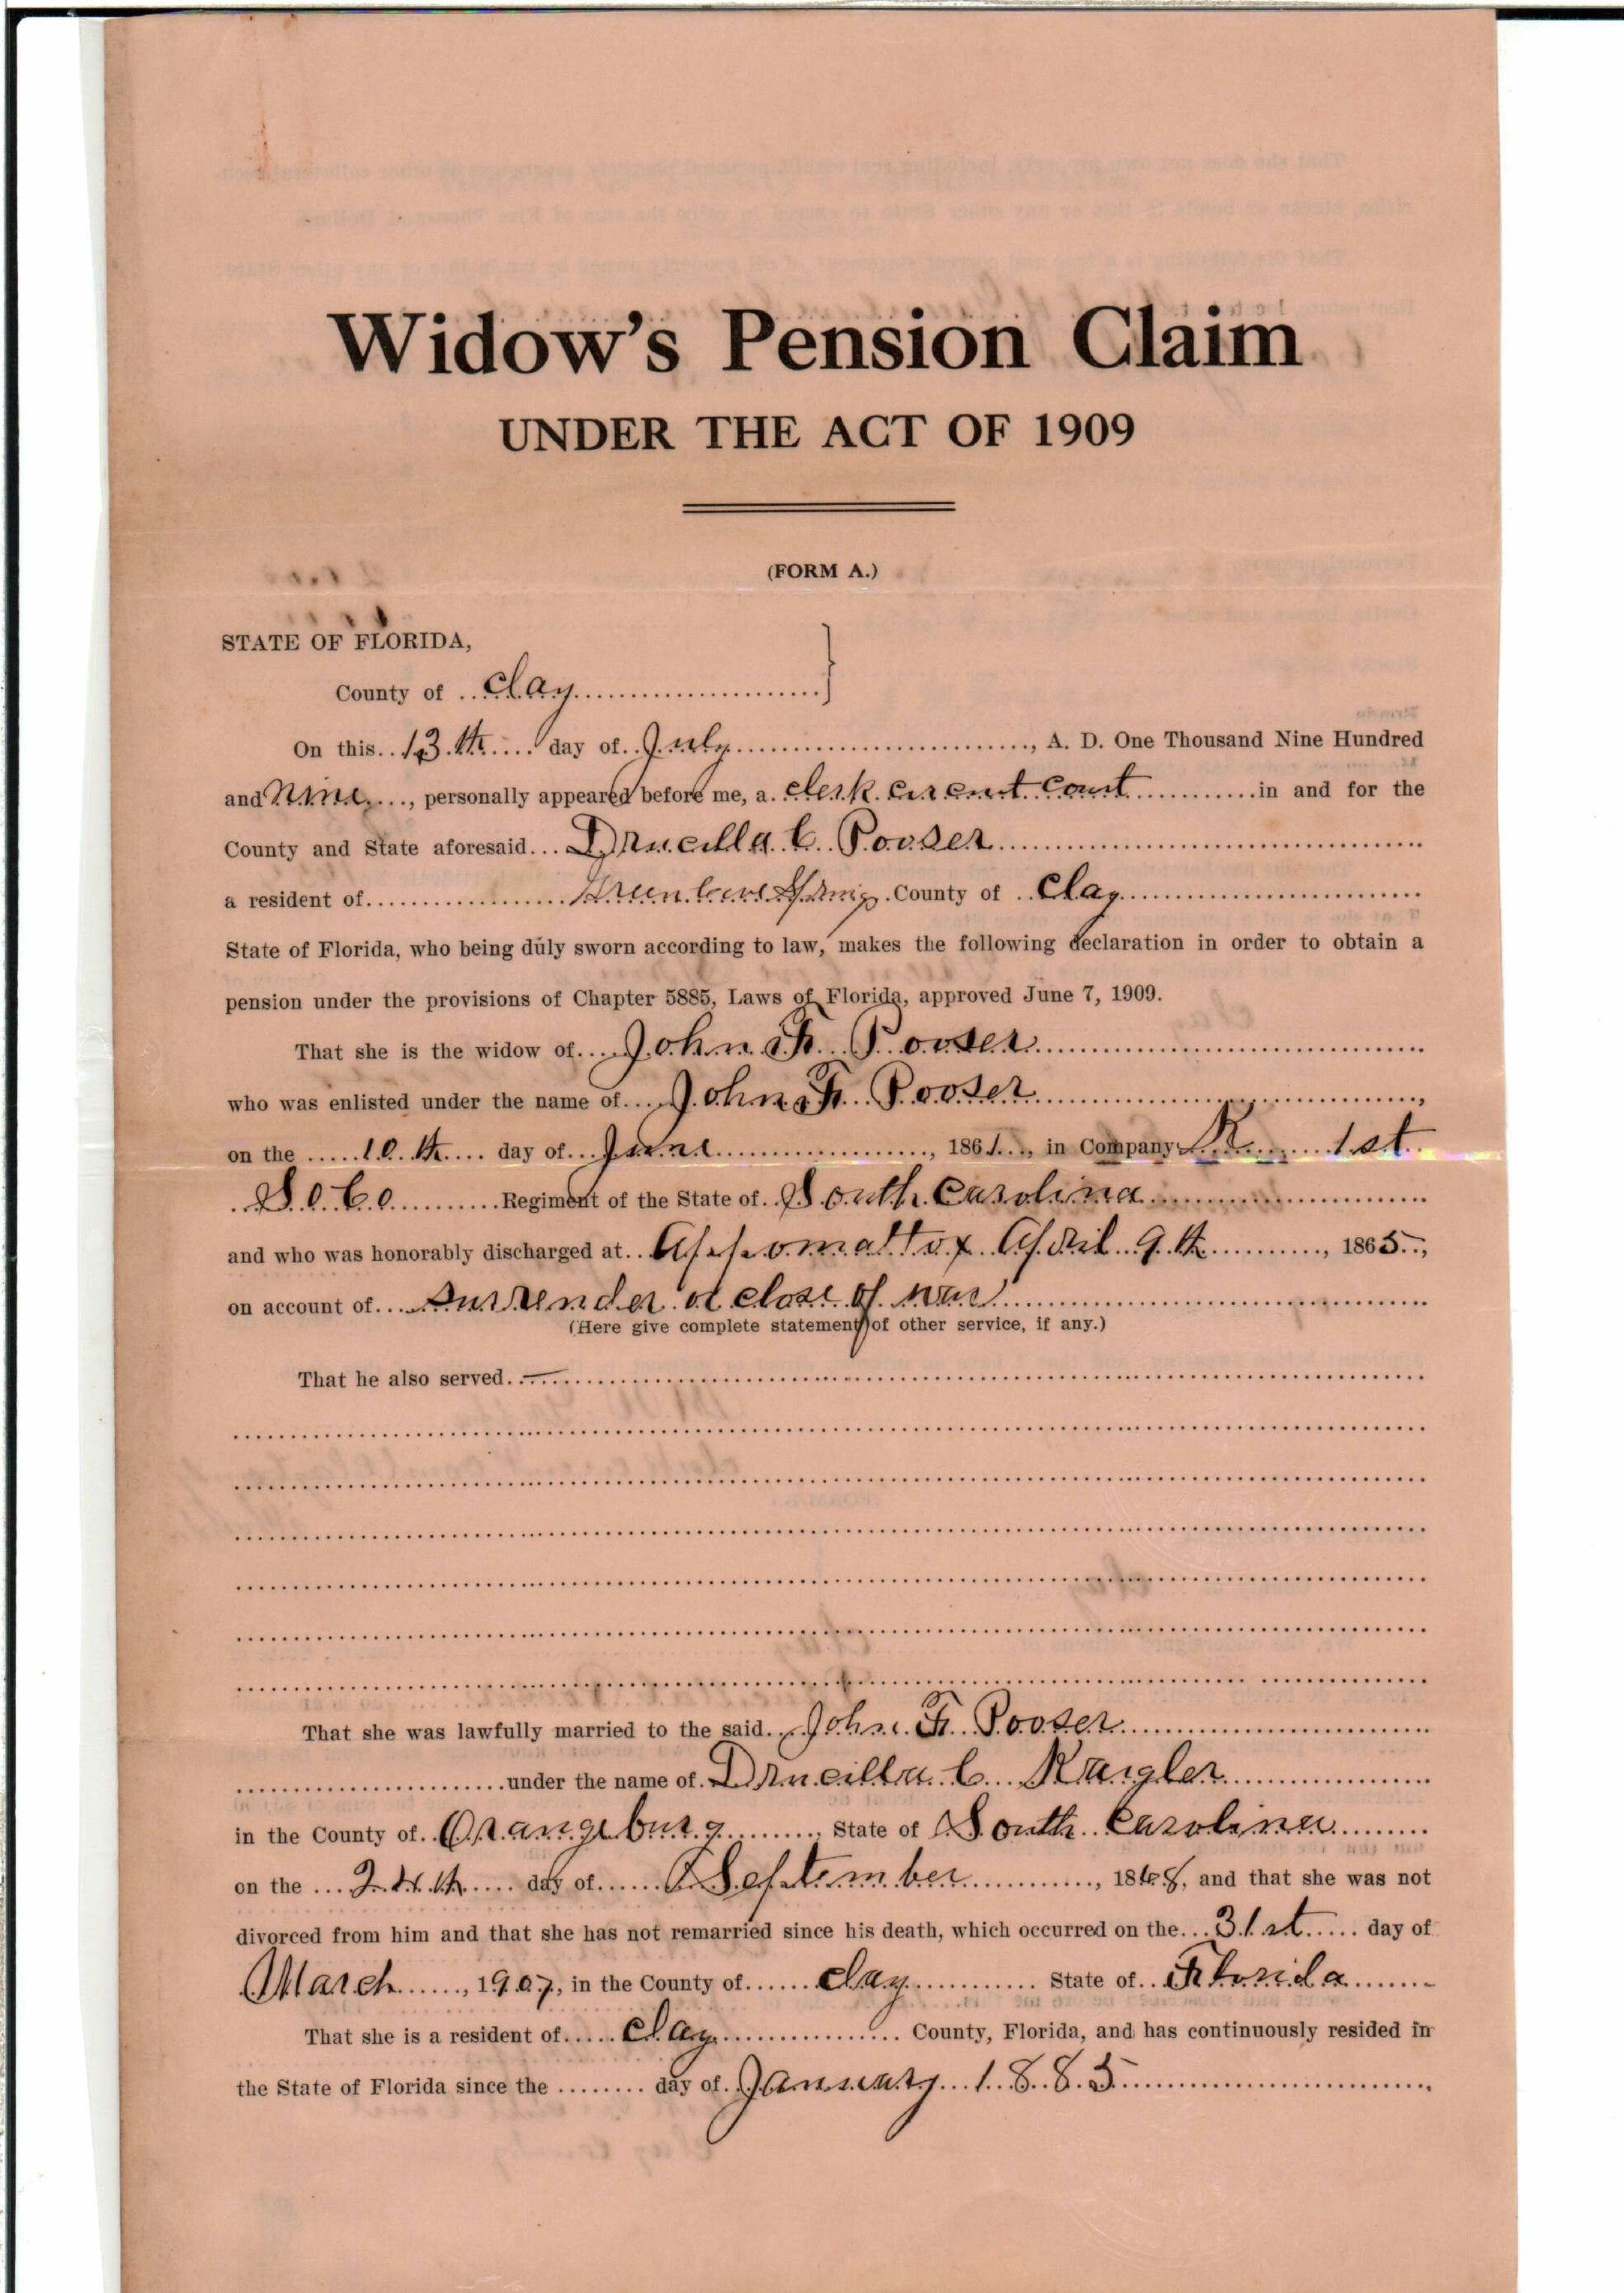 Widow's Pension Claim
UNDER THE ACT OF 1909
(FORM A.)
STATE OF FLORIDA,
County of Clay
On this 13th day of July, A. D. One Thousand Nine Hundred
and Nine, personally appeared before me, a clerk circuit court in and for the
County and State aforesaid Drucilla C. Pooser
a resident of Green Cove Springs County of Clay
State of Florida, who being duly sworn according to law, makes the following declaration in order to obtain a
pension under the provisions of Chapter 5885, Laws of Florida, approved June 7, 1909.
That she is the widow of John F. Pooser
who was enlisted under the name of John F. Pooser,
on the 10th day of June, 1861, in Company 1st
So Co Regiment of the State of South Carolina
and who was honorably discharged at Appomattox April 9th, 1865,
on account of surrender or close of war
(Here give complete statement of other service, if any.)
That he also served
That she was lawfully married to the said John F. Pooser
under the name of Drucilla C.
in the County of Orangeburg, State of South Carolina
on the 24th day of September, 1868, and that she was not
divorced from him and that she has not remarried since his death, which occurred on the 31st day of
March, 1907, in the County of Clay State of Florida
That she is a resident of Clay County, Florida, and has continuously resided in
the State of Florida since the day of January 1885